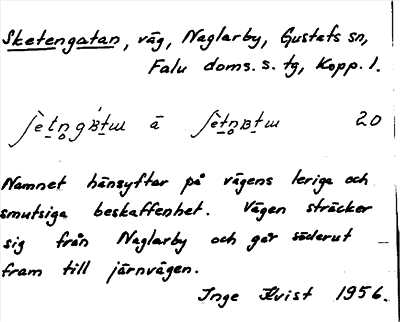 Sketengatan, väg, Naglarby, Gustafs sn,
Falu doms. s. tg, Kopp. l.
ʃètn̥gʙtɯ à ʃètn̥ʙtɯ 20
Namnet hänsyftar på vägens leriga och
smutsiga beskaffenhet. Vägen sträcker
sig från Naglarby och går söderut
fram till järnvägen.
Inge Kvist 1956.